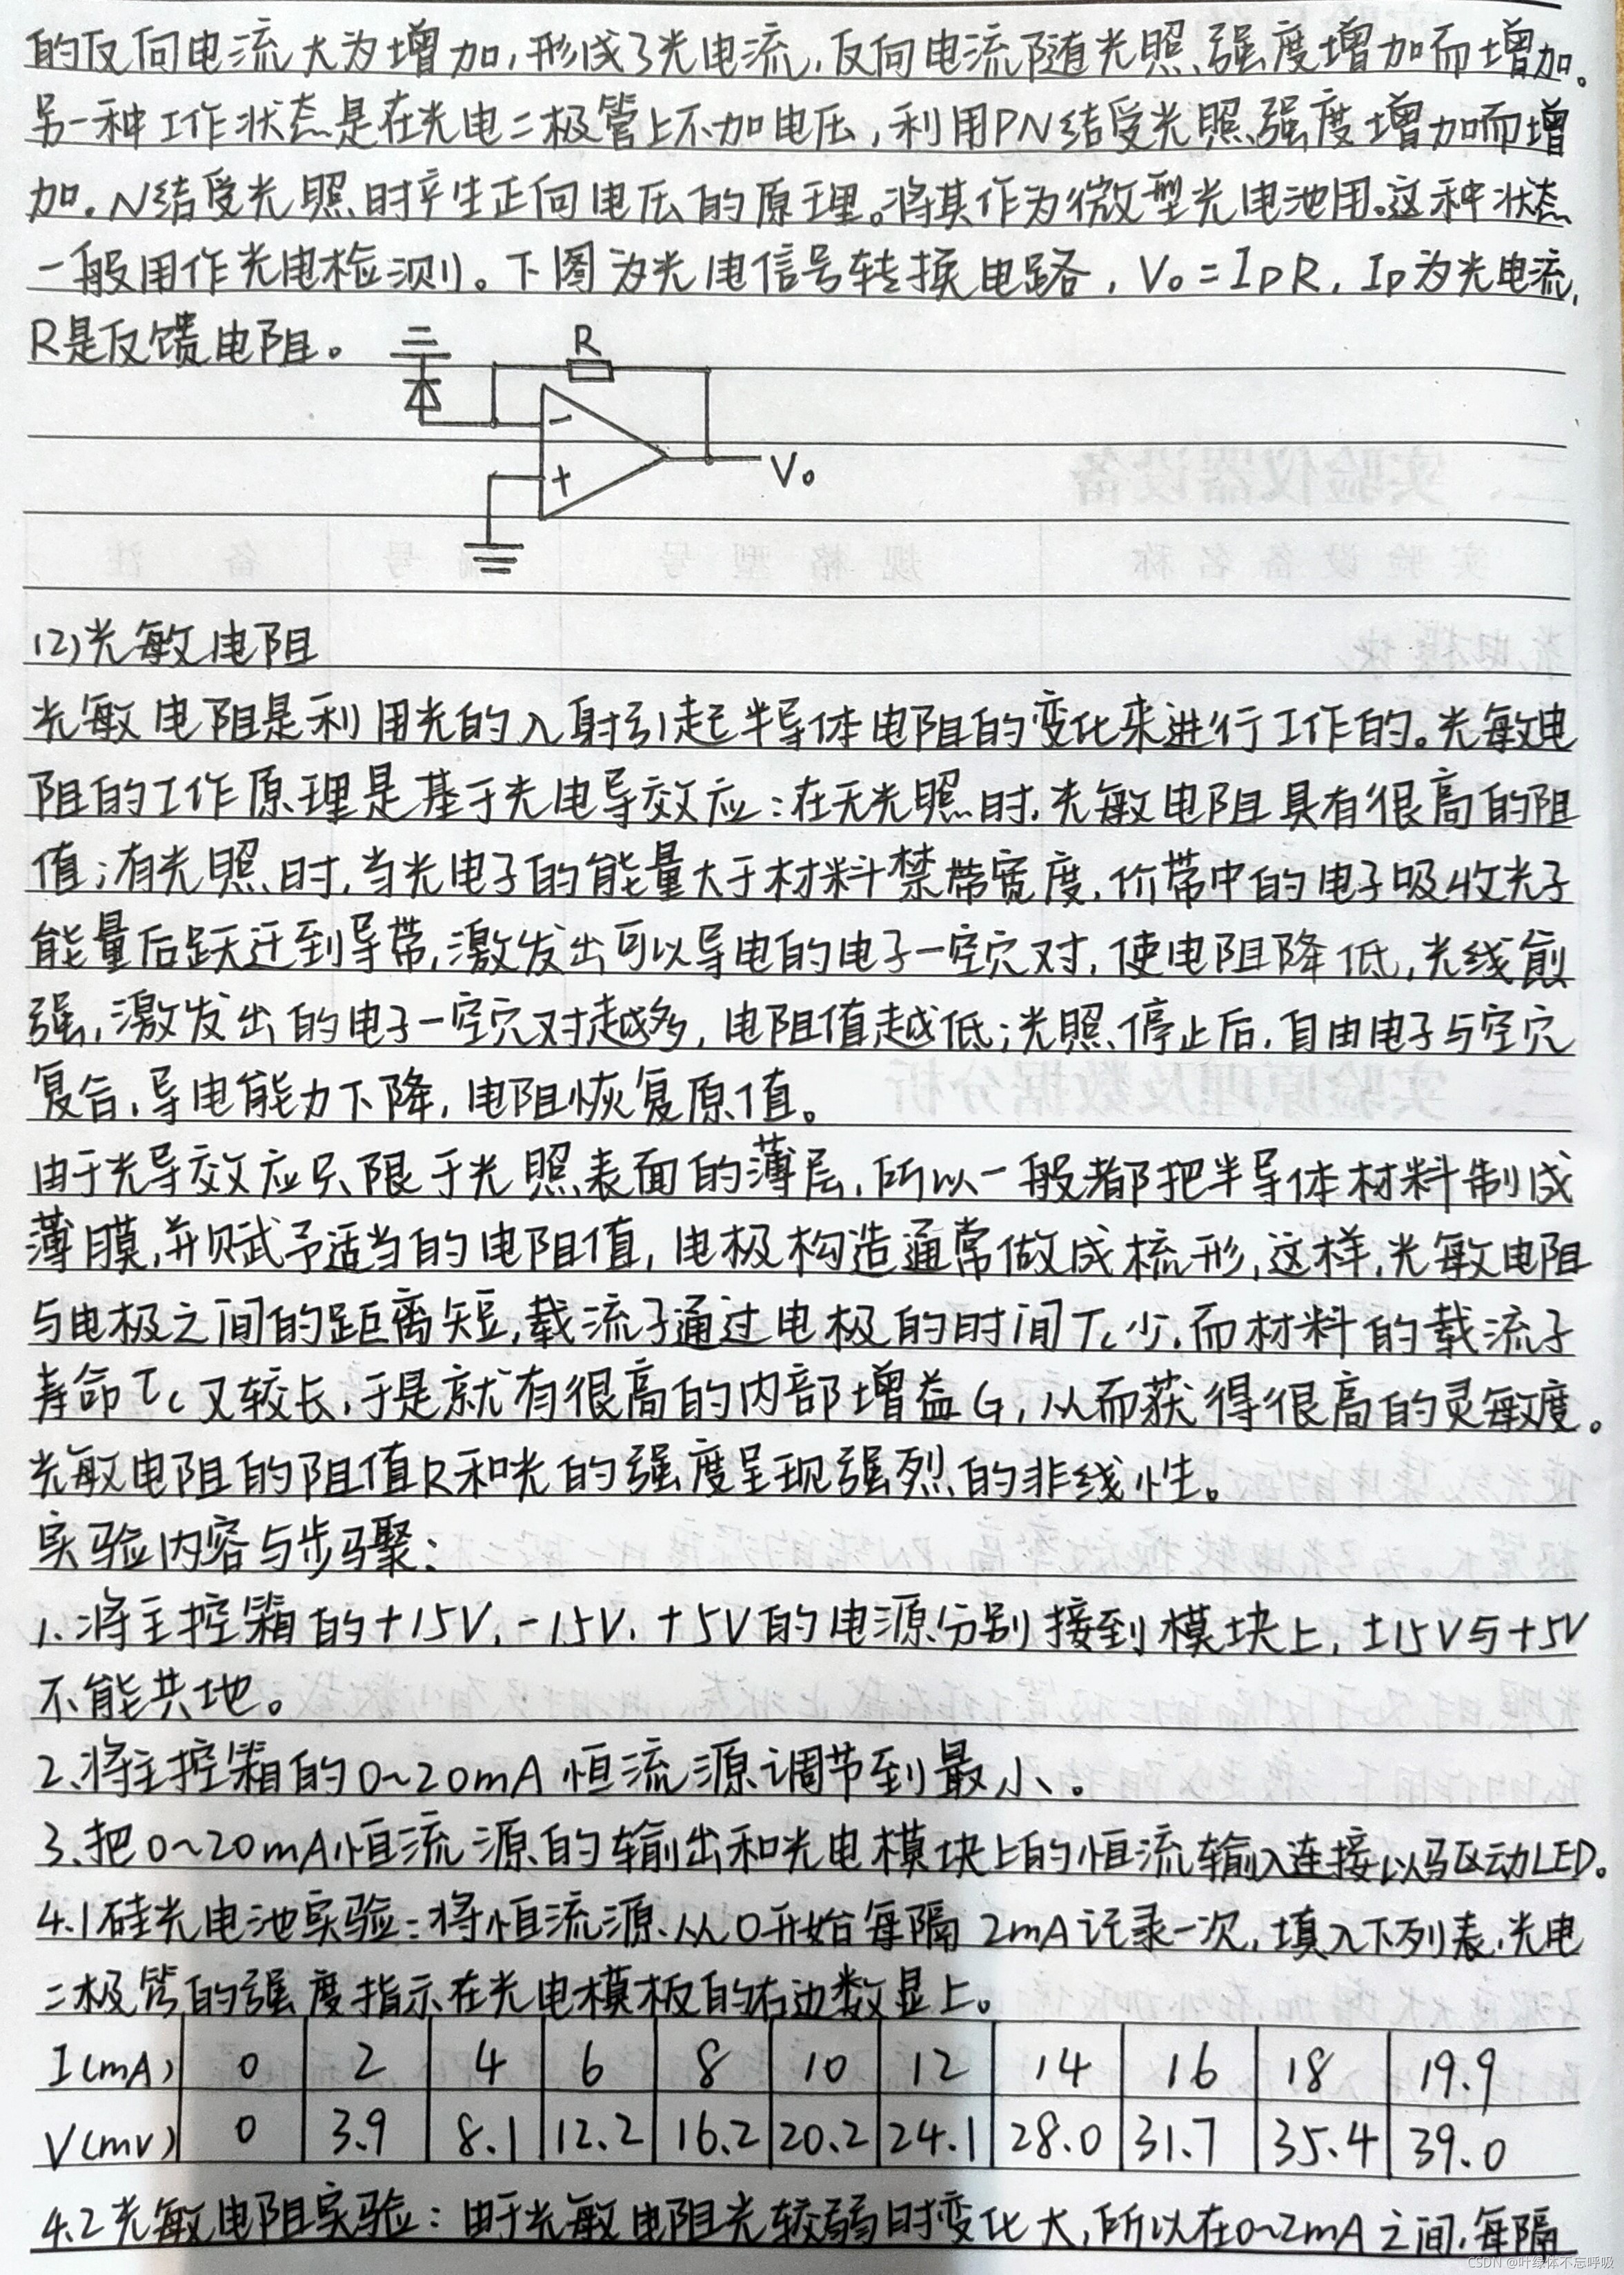 的反向电流大为增加,形成了光电流,反向电流随光照强度增加而增加。
另一种工作状态是在光电二极管上不加电压,利用PN结受光照强度增加而增
加。N结受光照时产生正向电压的原理。将其作为微型光电池用。这种状态
一般用作光电检测。下图为光电信号转换电路,Vo=IpR,Ip为光电流,
R是反馈电阻。
R
-
+
Vo
(2)光敏电阻
光敏电阻是利用光的入射引起半导体电阻的变化来进行工作的。光敏电
阻的工作原理是基于光电导效应:在无光照时,光敏电阻具有很高的阻
值;有光照时,当光电子的能量大于材料禁带宽度,价带中的电子吸收光子
能量后跃迁到导带,激发出可以导电的电子一空穴对,使电阻降低,光线愈
强,激发出的电子一空穴对越多,电阻值越低;光照停止后,自由电子与空穴
复合,导电能力下降,电阻恢复原值。
由于光导效应只限于光照表面的薄层,所以一般都把半导体材料制成
薄膜,并赋予适当的电阻值,电极构造通常做成梳形,这样,光敏电阻
与电极之间的距离短,载流子通过电极的时间Tc少,而材料的载流子
寿命τc又较长,于是就有很高的内部增益G,从而获得很高的灵敏度。
光敏电阻的阻值R和光的强度呈现强烈的非线性。
实验内容与步骤:
1.将主控箱的+15V,-15V,+5V的电源分别接到模块上,±15V与+5V
不能共地。
2.将主控箱的0~20mA恒流源调节到最小。
3.把0~20mA恒流源的输出和光电模块上的恒流输入连接以驱动LED。
4.1硅光电池实验:将恒流源从0开始每隔2mA记录一次,填入下列表,光电
二极管的强度指示在光电模板的右边数显上。
I(mA) 0 2 4 6 8 10 12 14 16 18 19.9
V(mv) 0 3.9 8.1 12.2 16.2 20.2 24.1 28.0 31.7 35.4 39.0
4.2光敏电阻实验:由于光敏电阻光较弱时变化大,所以在0~2mA之间,每隔
CSDN @叶绿体不忘呼吸
二、实验仪器设备
实验设备名称 规格型号 编号 备注
光电模块
三、实验原理及数据分析